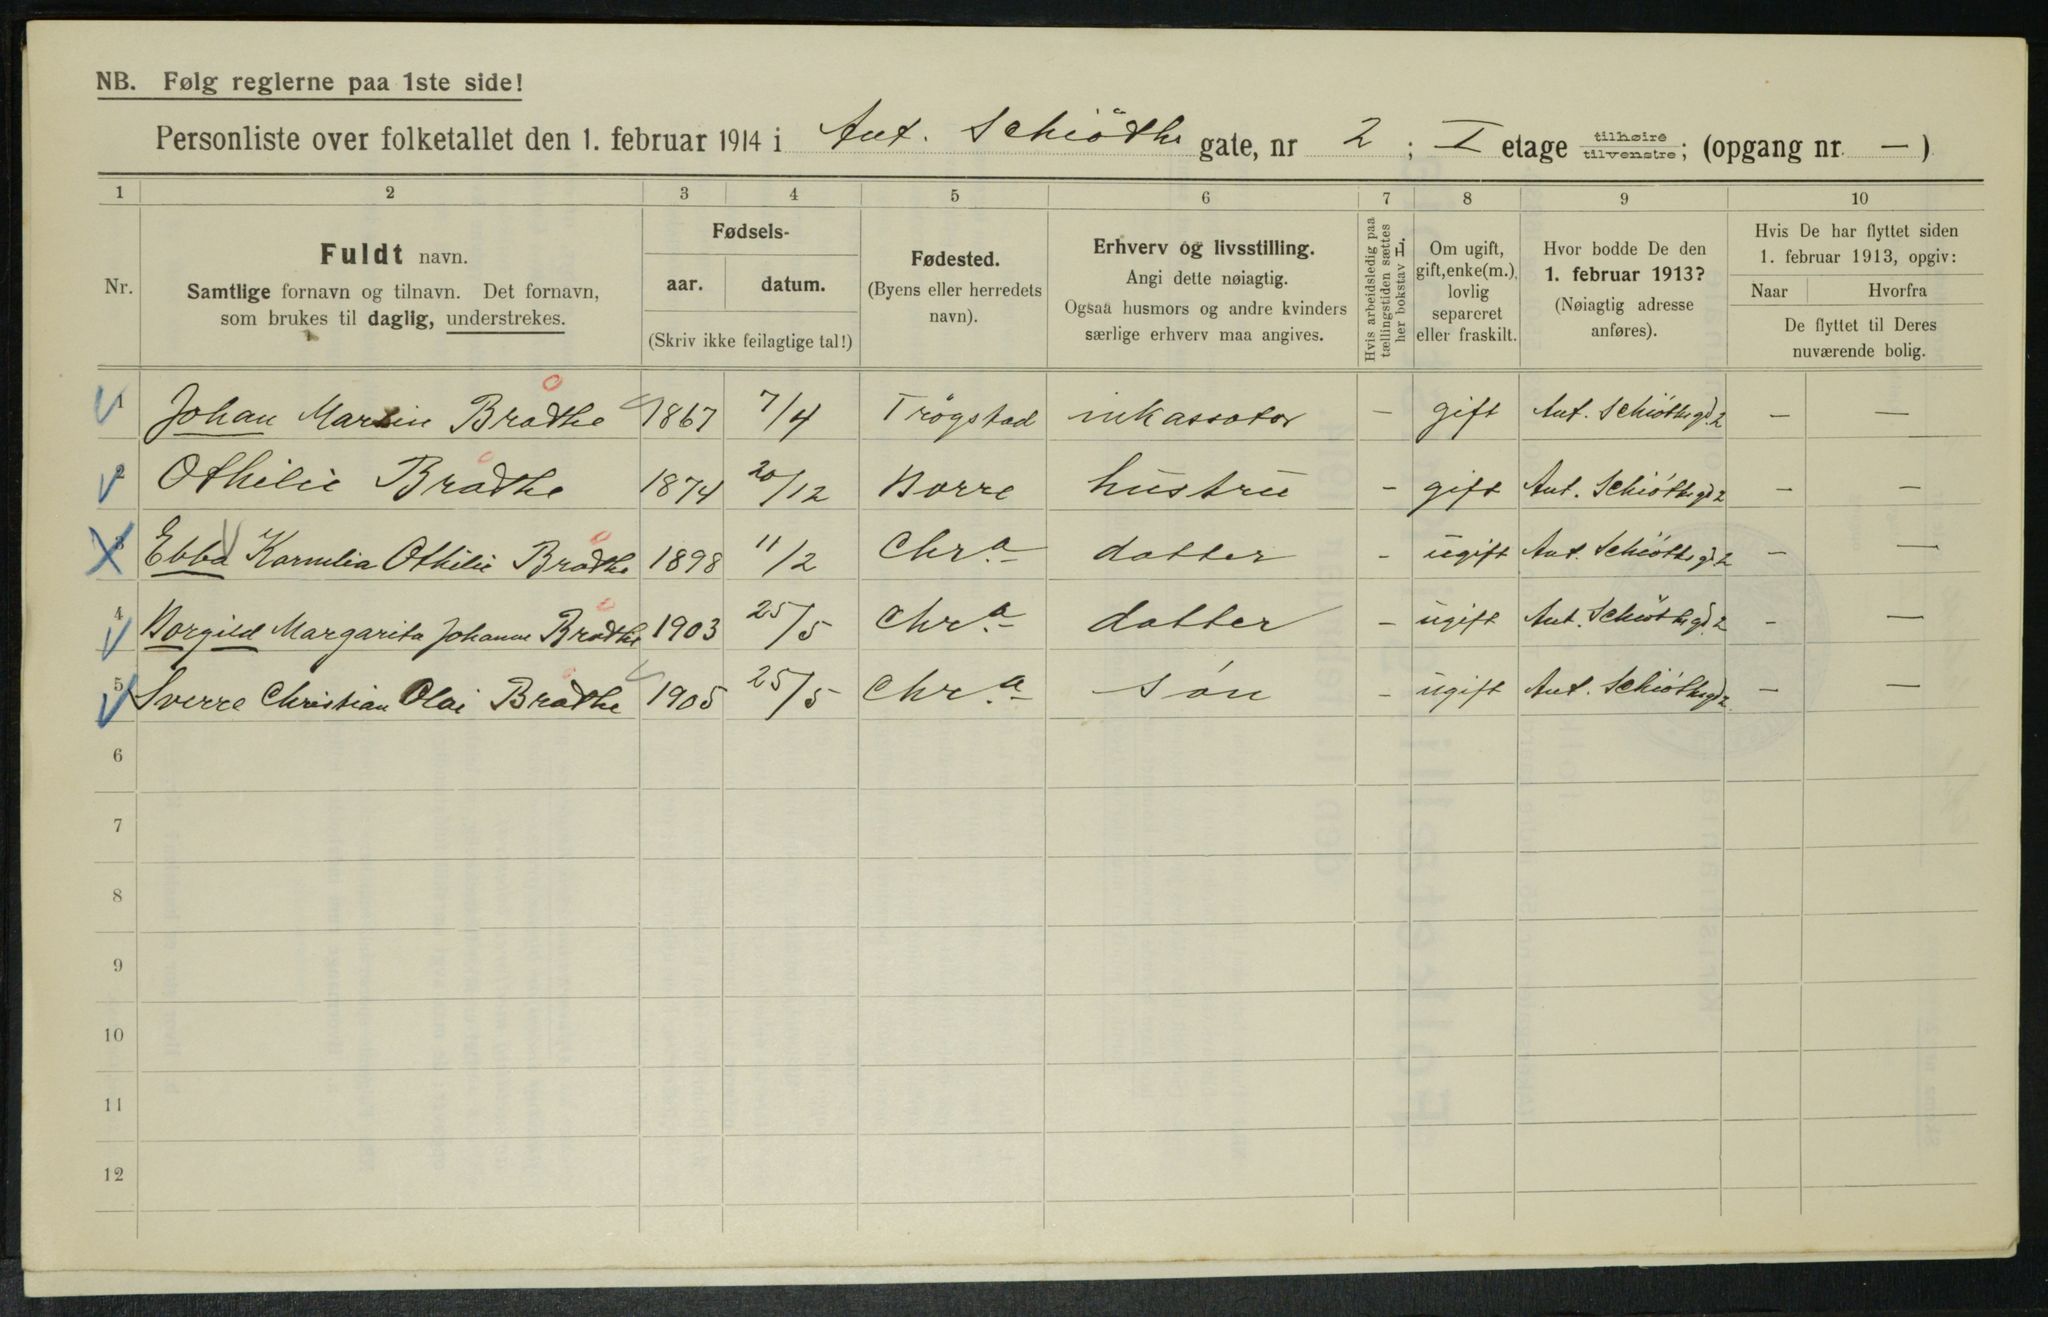 NB. Følg reglerne paa 1ste side!
Personliste over folketallet den 1. februar 1914 i Ant. Schiöths gate, nr 2 ; I etage tilhøire/tilvenstre; (opgang nr. — )
1 2 3 4 5 6 7 8 9 10
Nr.
Fuldt navn.
Samtlige fornavn og tilnavn. Det fornavn,
som brukes til daglig, understrekes.
Fødsels-
aar. datum.
(Skriv ikke feilagtige tal!)
Fødested.
(Byens eller herredets
navn).
Erhverv og livsstilling.
Angi dette nøiagtig.
Ogsaa husmors og andre kvinders
særlige erhverv maa angives.
Hvis arbeidsledig paa
tællingstiden sættes
her bokstav L.
Om ugift,
gift, enke(m.),
lovlig
separeret
eller fraskilt.
Hvor bodde De den
1. februar 1913?
(Nøiagtig adresse
anføres).
Hvis De har flyttet siden
1. februar 1913, opgiv:
Naar Hvorfra
De flyttet til Deres
nuværende bolig.
1 Johan Martin Brådhe 1867 7/4 Trögstad inkassator - gift Ant. Schiöthsgd. 2 — —
2 Othilie Brådhe 1874 20/12 Borre hustru - gift Ant. Schiöthsgd. 2 — —
3 Ebba Kornelia Othilie Brådhe 1898 11/2 Chr.a datter - ugift Ant. Schiöthsgd. 2 — —
4 Borgild Margarita Johanne Brådhe 1903 25/5 Chr.a datter - ugift Ant. Schiöthsgd. 2 - —
5 Sverre Christian Olai Brådhe 1905 25/5 Chr.a sön - ugift Ant. Schiöthsgd. 2 — —
6
7
8
9
10
11
12